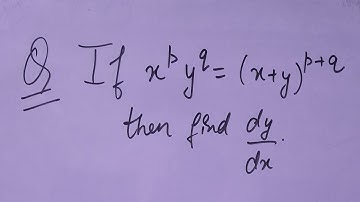 Q If x^p y^q = (x+y)^{p+q}
then find dy/dx.